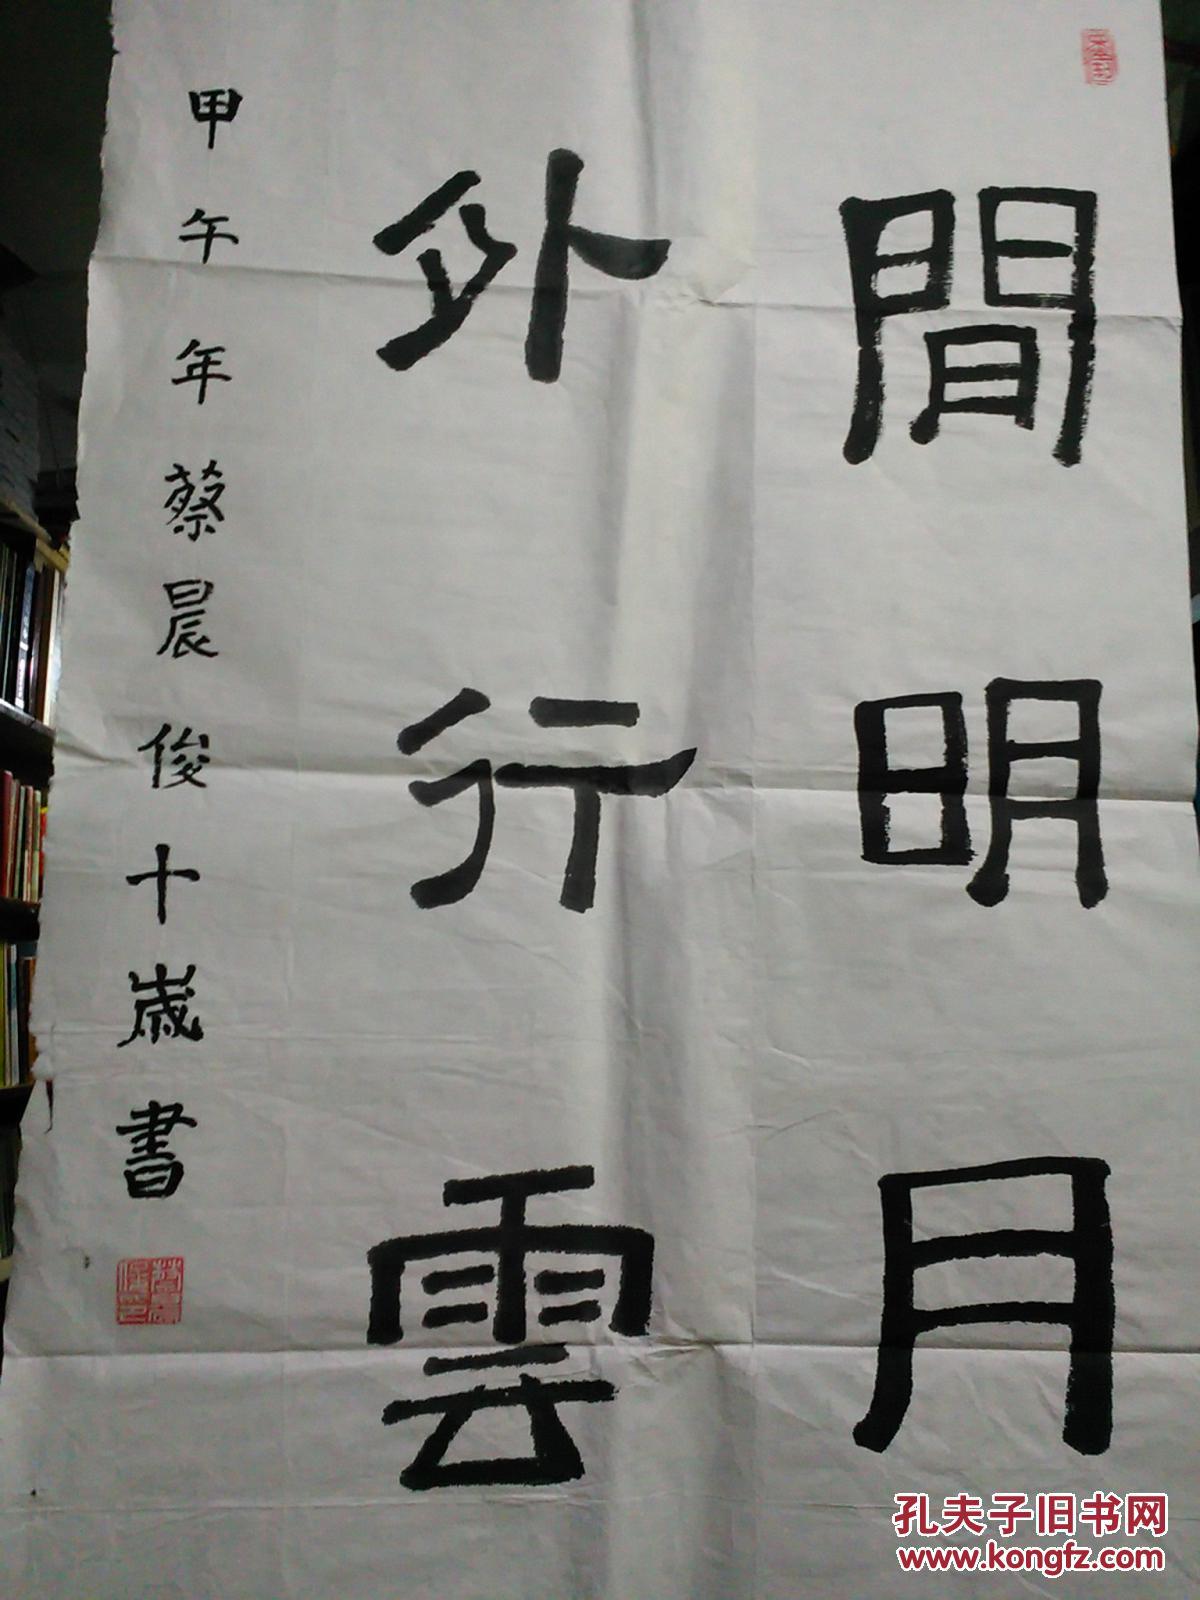 間明月
外行雲
甲午年蔡晨俊十歲書
孔夫子旧书网
www.kongfz.com